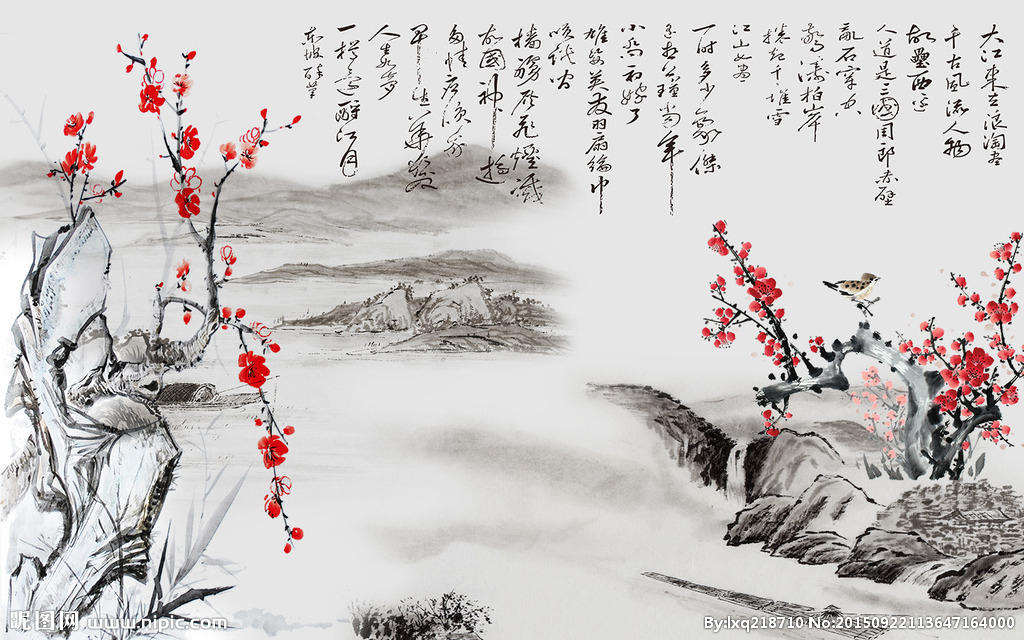 大江東去浪淘盡
千古風流人物
故壘西邊
人道是三國周郎赤壁
亂石穿空
驚濤拍岸
捲起千堆雪
江山如畫
一時多少豪傑
遙想公瑾當年
小喬初嫁了
雄姿英發羽扇綸巾
談笑間
檣櫓灰飛煙滅
故國神遊
多情應笑我
早生華髮
人生如夢
一樽還酹江月
東坡
昵图网 www.nipic.com
By:lxq218710 No:20150922113647164000